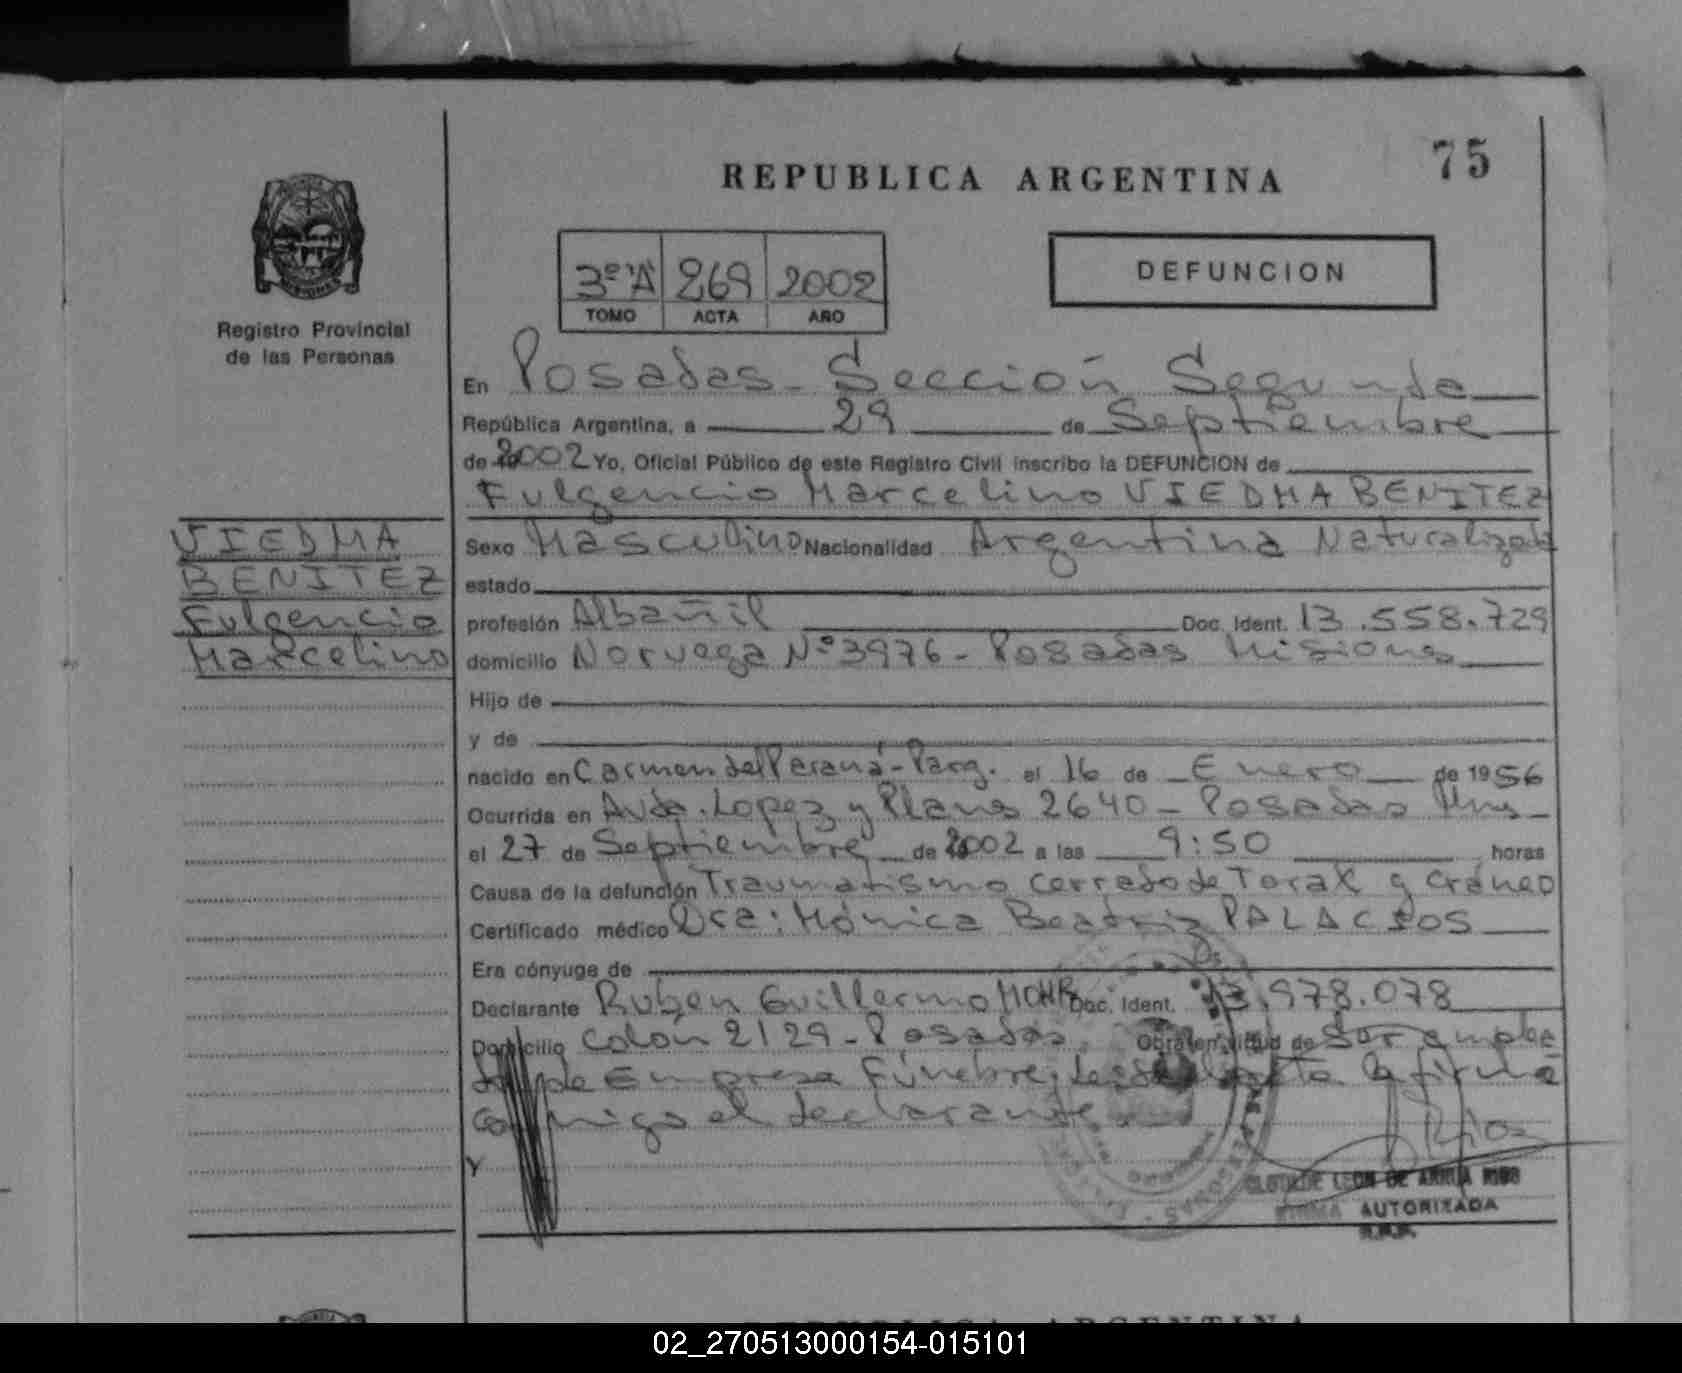 75
REPUBLICA ARGENTINA
3º "A" 269 2002
TOMO ACTA AÑO
DEFUNCION
Registro Provincial
de las Personas
En Posadas - Sección Segunda
República Argentina, a 29 de Septiembre
de 2002 Yo, Oficial Público de este Registro Civil inscribo la DEFUNCION de
Fulgencio Marcelino VIEDMA BENITEZ
VIEDMA
BENITEZ
Fulgencio
Marcelino
Sexo Masculino Nacionalidad Argentina Naturalizado
estado
profesión Albañil Doc. Ident. 13.558.729
domicilio Noruega Nº 3976 - Posadas Misiones
Hijo de
y de
nacido en Carmen del Paraná - Parg. el 16 de Enero de 1956
Ocurrida en Avda. Lopez y Planes 2640 - Posadas Mns
el 27 de Septiembre de 2002 a las 9:50 horas
Causa de la defunción Traumatismo cerrado de Torax y cráneo
Certificado médico Dra: Mónica Beatriz PALACIOS
Era cónyuge de
Declarante Ruben Guillermo MOHR Doc. Ident. 13.978.078
Domicilio Colón 2129 - Posadas Obra en virtud de Ser emplea
do de Empresa Fúnebre, Leída el acta la firma
conmigo el declarante.
CLOTILDE LEON DE ARRUA RIOS
FIRMA AUTORIZADA
02_270513000154-015101